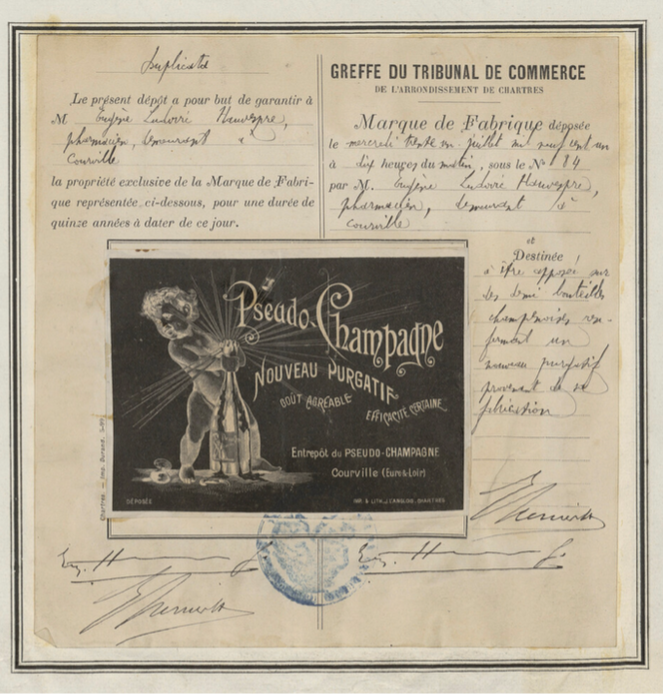 Duplicata
Le présent dépôt a pour but de garantir à
M Eugène Ludovic
pharmacien, demeurant à
Courville
la propriété exclusive de la Marque de Fabri-
que représentée ci-dessous, pour une durée de
quinze années à dater de ce jour.
GREFFE DU TRIBUNAL DE COMMERCE
DE L'ARRONDISSEMENT DE CHARTRES
Marque de Fabrique déposée
le mercredi trente un juillet mil neuf cent un
à dix heures du matin, sous le N° 84
par M. Eugène Ludovic
pharmacien, demeurant à
Courville
et
Destinée
à être apposée sur
des demi bouteilles
champenoises ren-
fermant un
nouveau purgatif
provenant de sa
fabrication
Pseudo-Champagne
NOUVEAU PURGATIF
GOÛT AGRÉABLE
EFFICACITÉ CERTAINE
Entrepôt du PSEUDO-CHAMPAGNE
Courville (Eure & Loir)
DÉPOSÉE
IMP. & LITH. J. LANGLOIS, CHARTRES
Chartres. — Imp. Durand.
Eug. H
Eug. H